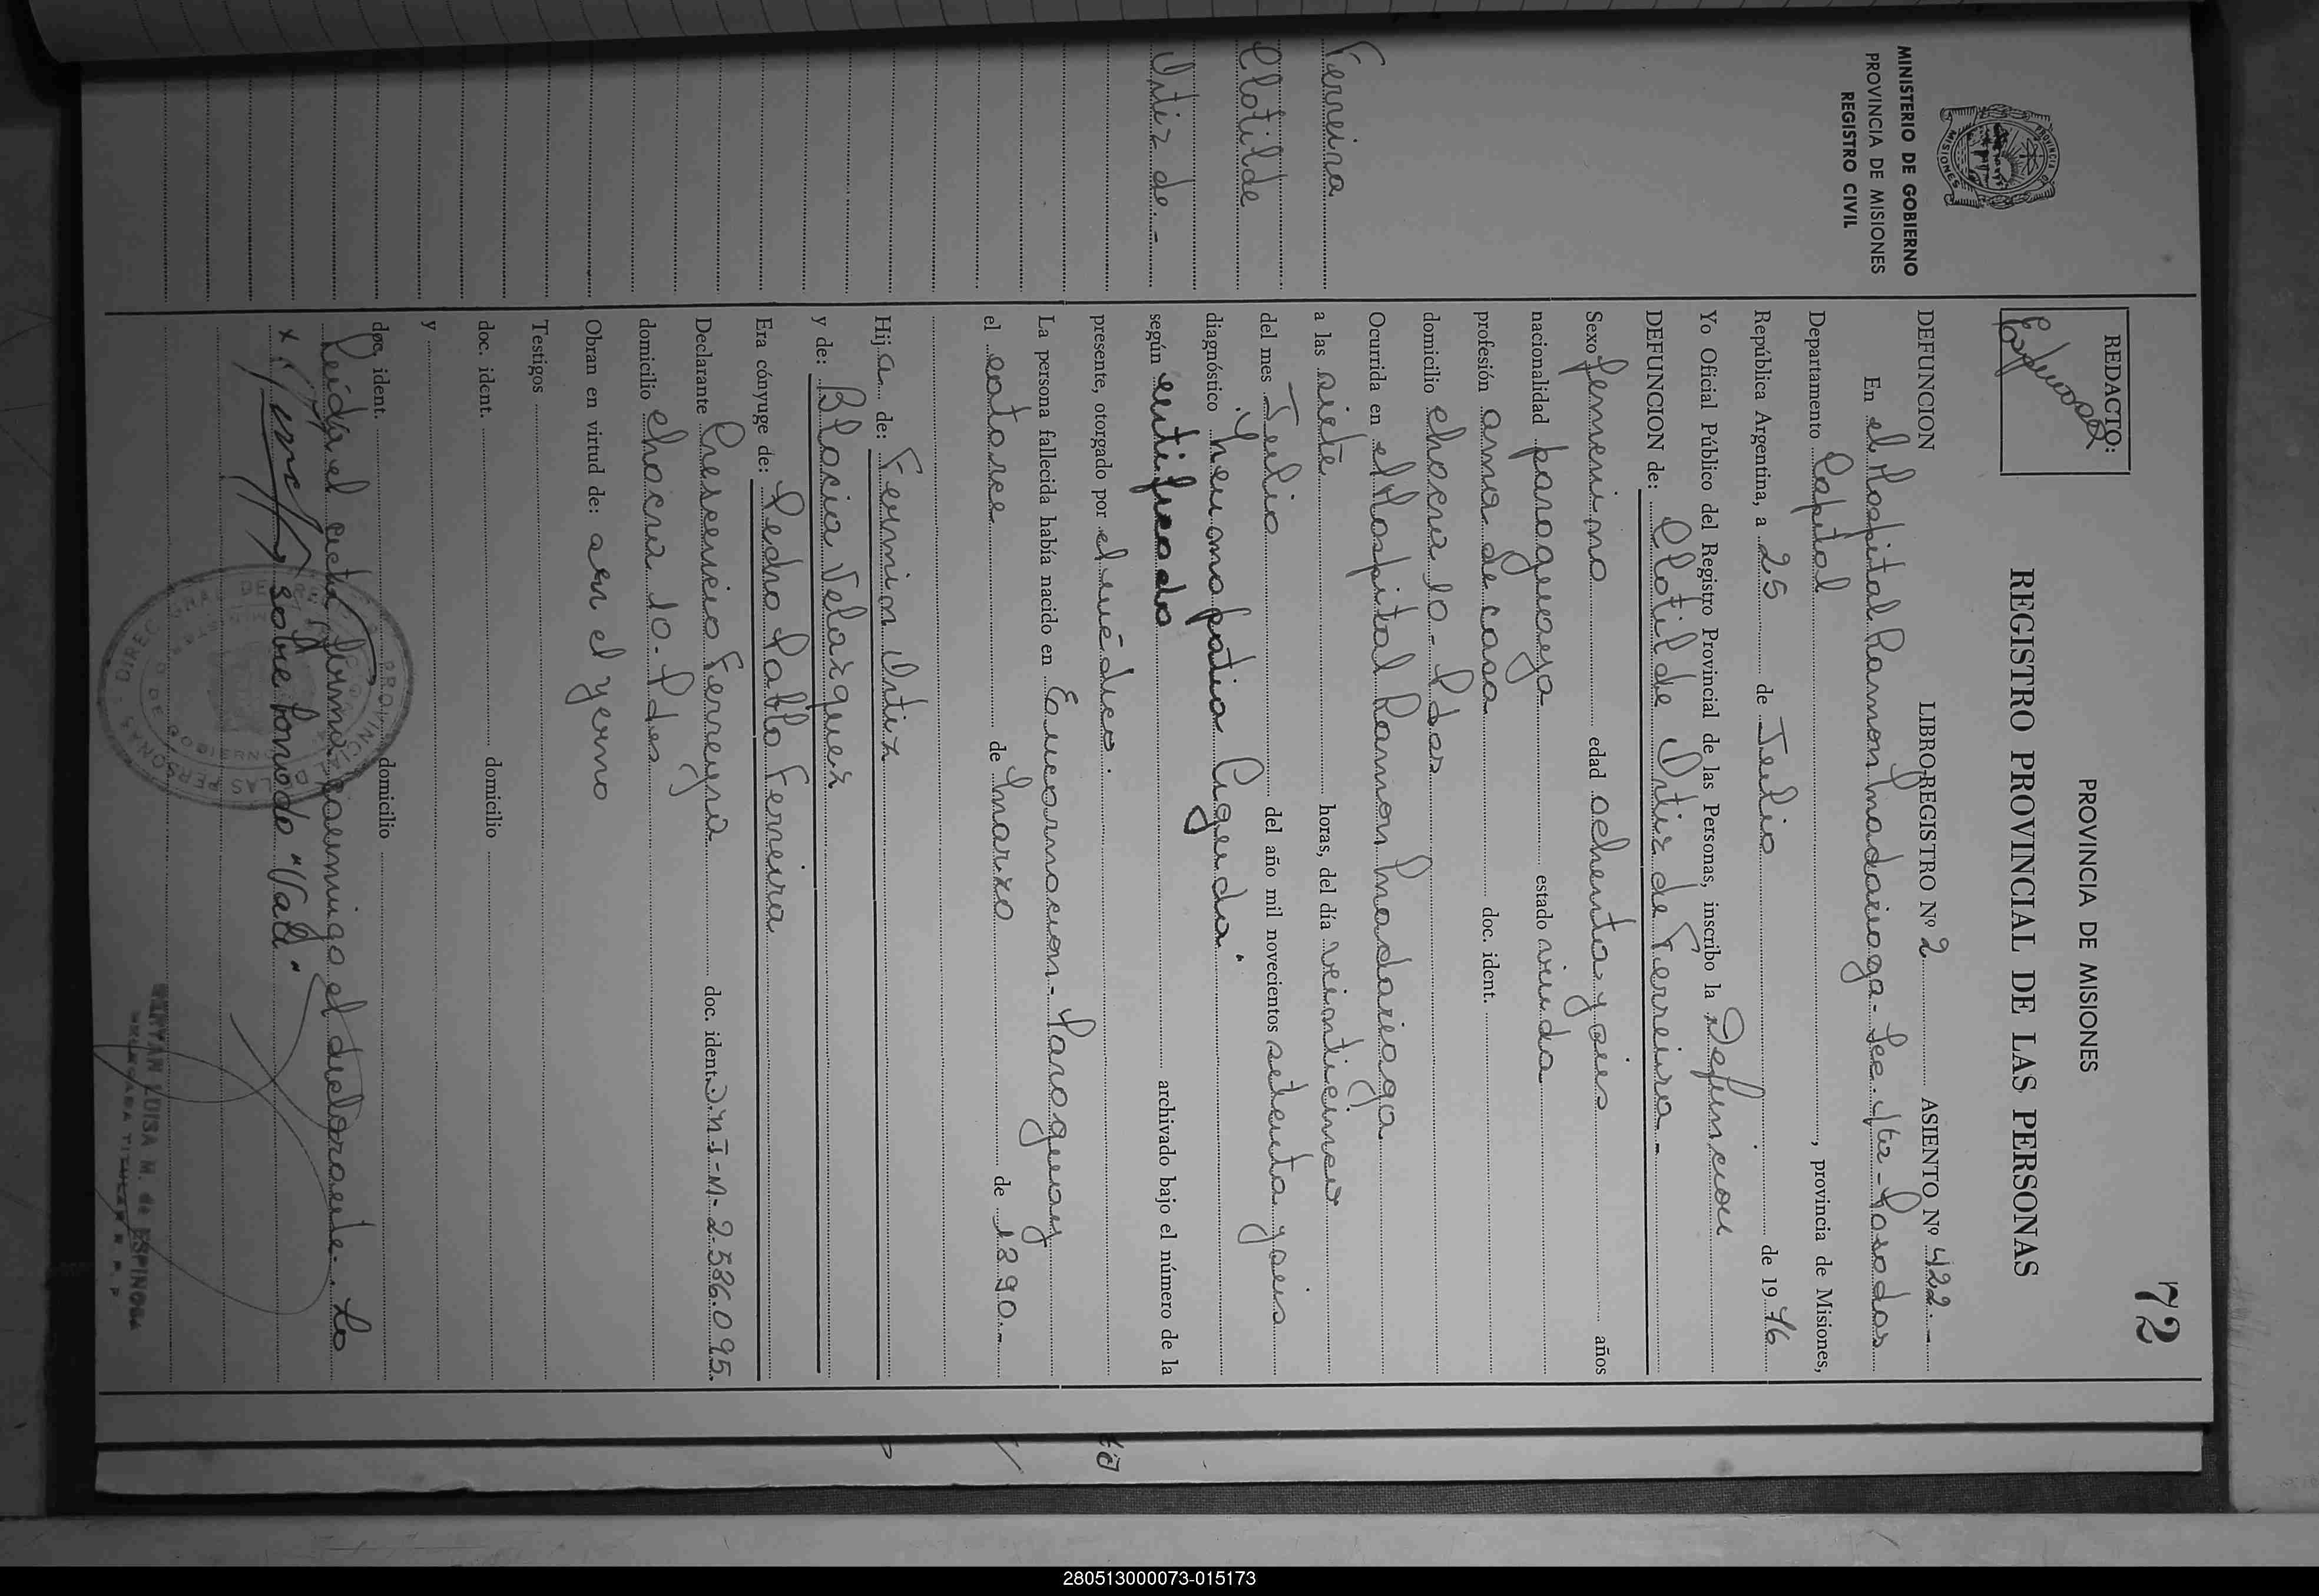 72
MINISTERIO DE GOBIERNO
PROVINCIA DE MISIONES
REGISTRO CIVIL
Ferreira
Clotilde
Ortiz de.-
REDACTO:
PROVINCIA DE MISIONES
REGISTRO PROVINCIAL DE LAS PERSONAS
DEFUNCION LIBRO-REGISTRO Nº 2 ASIENTO Nº 422.-
En el Hospital Ramon Madariaga - Posadas
Departamento Capital, provincia de Misiones,
República Argentina, a 25 de Julio de 1976
Yo Oficial Público del Registro Provincial de las Personas, inscribo la Defuncion
DEFUNCION de: Clotilde Ortiz de Ferreira.-
Sexo femenino edad ochenta y seis años
nacionalidad paraguaya estado viuda
profesión ama de casa doc. ident.
domicilio chacra 10 - Pdas
Ocurrida en el Hospital Ramon Madariaga
a las siete horas, del día veinticinco
del mes Julio del año mil novecientos setenta y seis
diagnóstico "Neumopatia Aguda"
según certificado archivado bajo el número de la
presente, otorgado por el médico.
La persona fallecida había nacido en Encarnacion - Paraguay
el catorce de marzo de 1890.-
Hija de: Fermin Ortiz
y de: Blacia Velazquez
Era cónyuge de: Pedro Pablo Ferreira
Declarante Crescencio Ferreyra doc. ident. D.N.I-M- 2.586.095
domicilio chacra 10. Pdas
Obran en virtud de: ser el yerno
Testigos
doc. ident. domicilio
y
doc. ident. domicilio
Leida el acta firmó conmigo el declarante. Lo
sobre borrado "Vale".
MIRYAN LUISA M. de ESPINOSA
DELEGADA TITULAR R. P. P.
280513000073-015173